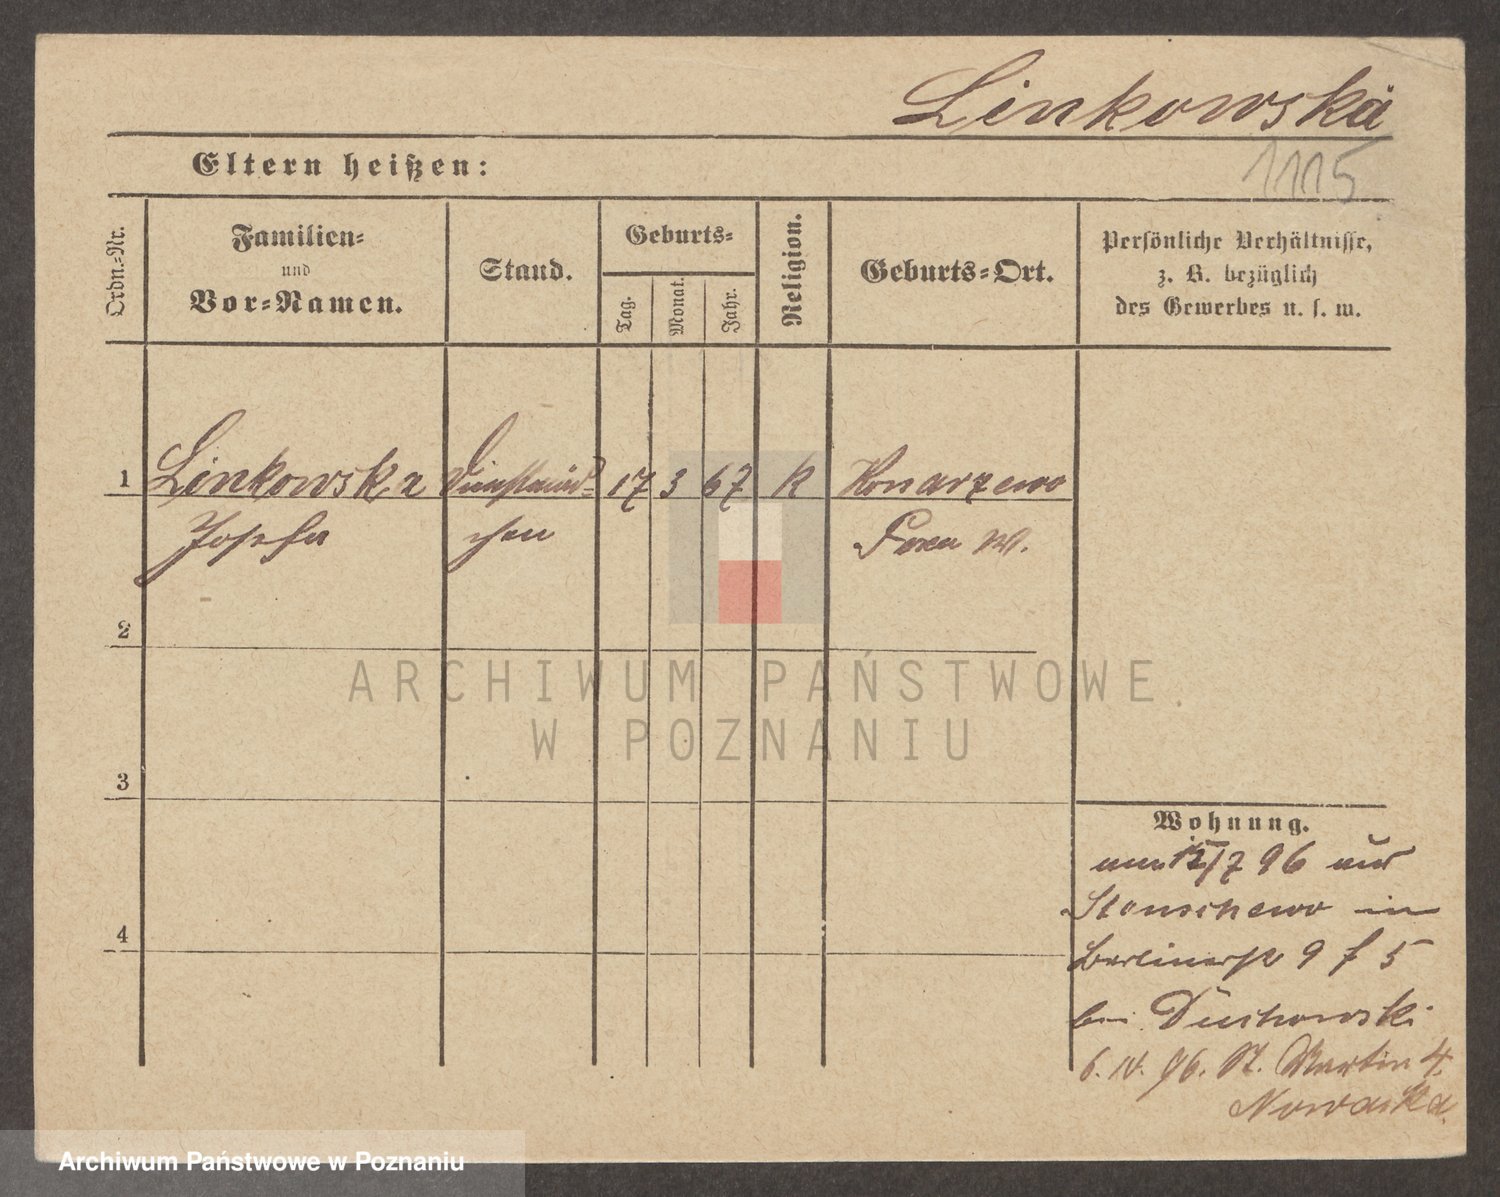 Linkowska
1115
Eltern heißen:
Ordn.-Nr.
Familien-
und
Vor-Namen.
Stand.
Geburts-
Tag.
Monat.
Jahr.
Religion.
Geburts-Ort.
Persönliche Verhältnisse,
z. B. bezüglich
des Gewerbes u. s. w.
1 Linkowska Dienstmäd- 17 3 67 K Konarzewo
Josefa chen Posen W.
2
3
4
Wohnung.
/7 96 aus
in
Berlinerstr 9 f 5
bei Duchowski
6. IV. 96. St. Martin 4.
Nowacka.
ARCHIWUM PAŃSTWOWE
W POZNANIU
Archiwum Państwowe w Poznaniu